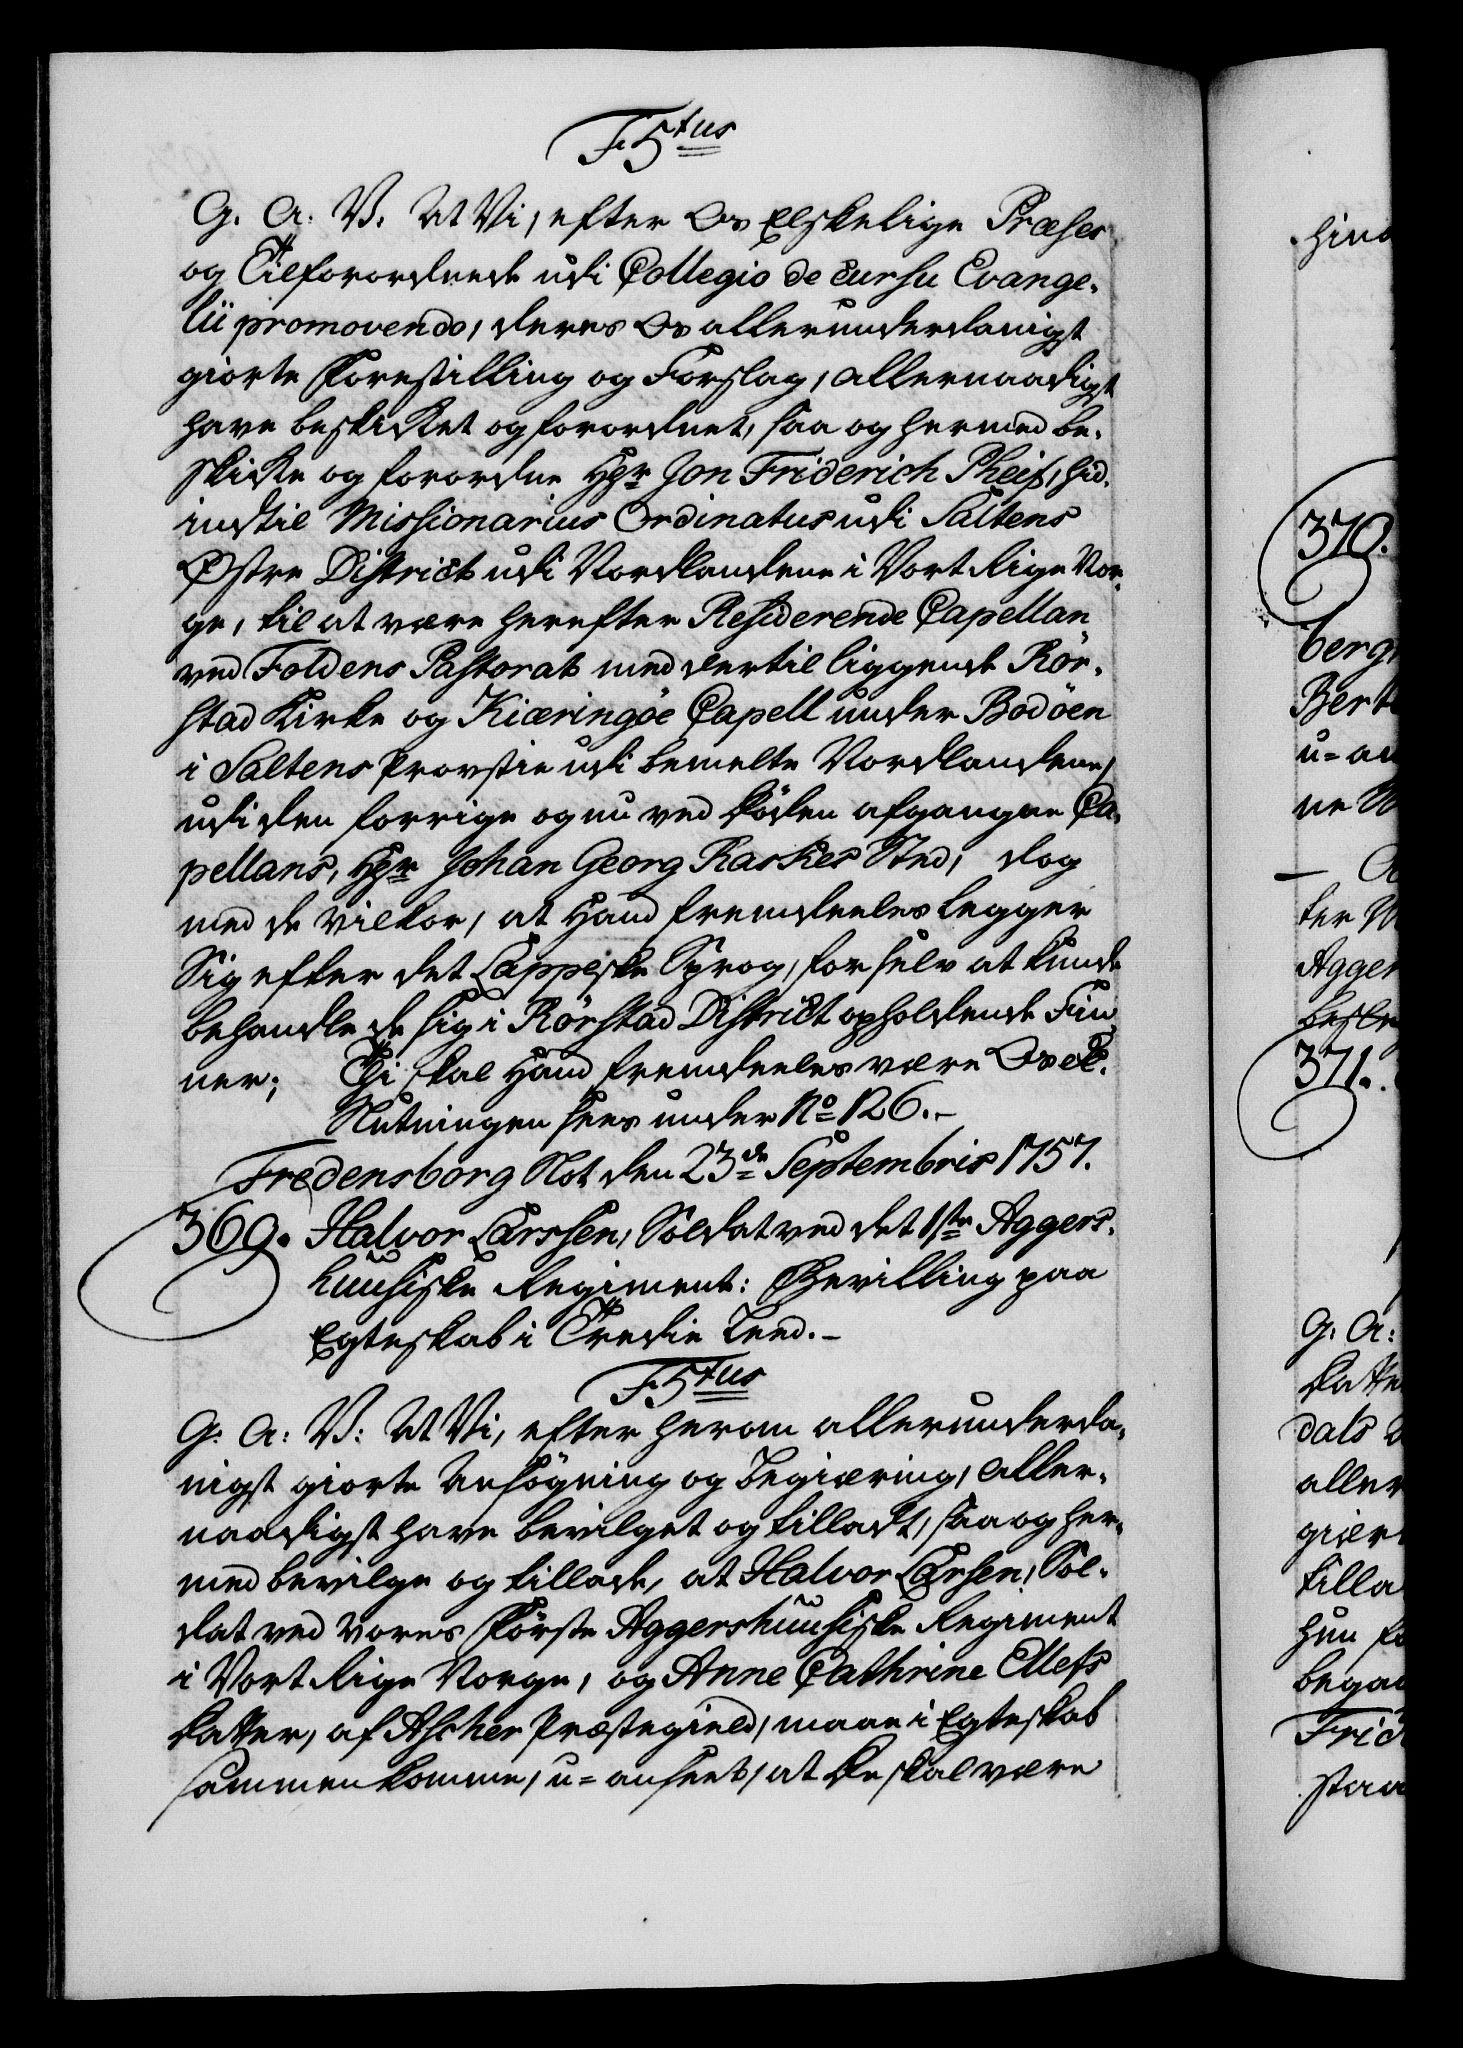 F. 5tus
G. A. V. At Vi, efter Os Elskelige Præses
og Tilforordnede udi Collegio de cursu Evange-
lii promovendo, deres Os allerunderdanigst
giorte Forestilling og Forslag, allernaadigst
have beskikket og forordnet, saa og hermed be-
skikke og forordne Hgr Jon Friderich Pheif, hid-
indtil Missionarius Ordinatus udi Saltens
Østre District udi Nordlandene i Vort Rige Nor-
ge, til at være herefter Residerende Capellan
ved Foldens Pastorat med dertil liggende Rör-
stad Kirke og Kiæringöe Capell under Bodöen
i Saltens Provstie udi bemelte Nordlandene,
udi den forrige og nu ved Döden afgangne Ca-
pellans, Hgr Johan Georg Raskes Sted, dog
med de Vilkor, at Hand fremdeeles legger
Sig efter det Lappiske Sprog, for selv at kunde
behandle de sig i Rörstad District opholdende Fin-
ner; Thi skal Hand fremdeeles være Os etc.
Slutningen sees under No 126.-
Fredensborg Slot den 23de Septembris 1757.
369. Halvor Larssen, Soldat ved det 1ste Aggers-
huusiske Regiment: Bevilling paa
Egteskab i Tredie Leed.-
F. 5tus
G. A: V: At Vi, efter herom allerunderda-
nigst giorte Ansögning og Begiæring, aller-
naadigst have bevilget og tilladt, saa og her-
med bevilge og tillade, at Halvor Larsen, Sol-
dat ved Vores Förste Aggershuusiske Regiment
i Vort Rige Norge, og Anne Cathrine Ellefs
Datter, af Ascher Præstegield, maae i Egteskab
sammenkomme, u-anseet, at De skal være
370.
berg
Bert
u-an
ne
ter
Agger
371.
G. A:
Datte
dals
aller
giær
tilla
hun
begaa
Frid
staa